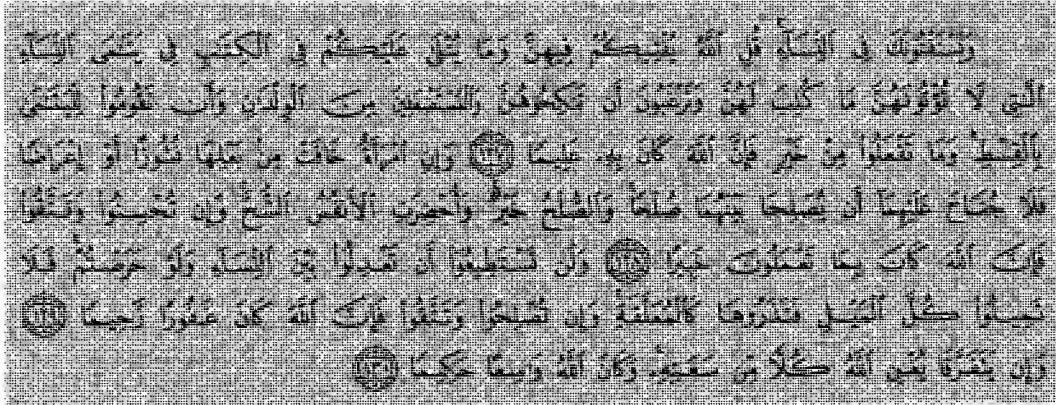 وَيَسْتَفْتُونَكَ فِى ٱلنِّسَآءِ قُلِ ٱللَّهُ يُفْتِيكُمْ فِيهِنَّ وَمَا يُتْلَىٰ عَلَيْكُمْ فِى ٱلْكِتَٰبِ فِى يَتَٰمَى ٱلنِّسَآءِ
ٱلَّٰتِى لَا تُؤْتُونَهُنَّ مَا كُتِبَ لَهُنَّ وَتَرْغَبُونَ أَن تَنكِحُوهُنَّ وَٱلْمُسْتَضْعَفِينَ مِنَ ٱلْوِلْدَٰنِ وَأَن تَقُومُوا۟ لِلْيَتَٰمَىٰ
بِٱلْقِسْطِ وَمَا تَفْعَلُوا۟ مِنْ خَيْرٍ فَإِنَّ ٱللَّهَ كَانَ بِهِۦ عَلِيمًا ﴿١٢٧﴾ وَإِنِ ٱمْرَأَةٌ خَافَتْ مِنۢ بَعْلِهَا نُشُوزًا أَوْ إِعْرَاضًا
فَلَا جُنَاحَ عَلَيْهِمَآ أَن يُصْلِحَا بَيْنَهُمَا صُلْحًا وَٱلصُّلْحُ خَيْرٌ وَأُحْضِرَتِ ٱلْأَنفُسُ ٱلشُّحَّ وَإِن تُحْسِنُوا۟ وَتَتَّقُوا۟
فَإِنَّ ٱللَّهَ كَانَ بِمَا تَعْمَلُونَ خَبِيرًا ﴿١٢٨﴾ وَلَن تَسْتَطِيعُوٓا۟ أَن تَعْدِلُوا۟ بَيْنَ ٱلنِّسَآءِ وَلَوْ حَرَصْتُمْ فَلَا
تَمِيلُوا۟ كُلَّ ٱلْمَيْلِ فَتَذَرُوهَا كَٱلْمُعَلَّقَةِ وَإِن تُصْلِحُوا۟ وَتَتَّقُوا۟ فَإِنَّ ٱللَّهَ كَانَ غَفُورًا رَّحِيمًا ﴿١٢٩﴾
وَإِن يَتَفَرَّقَا يُغْنِ ٱللَّهُ كُلًّا مِّن سَعَتِهِۦ وَكَانَ ٱللَّهُ وَٰسِعًا حَكِيمًا ﴿١٣٠﴾